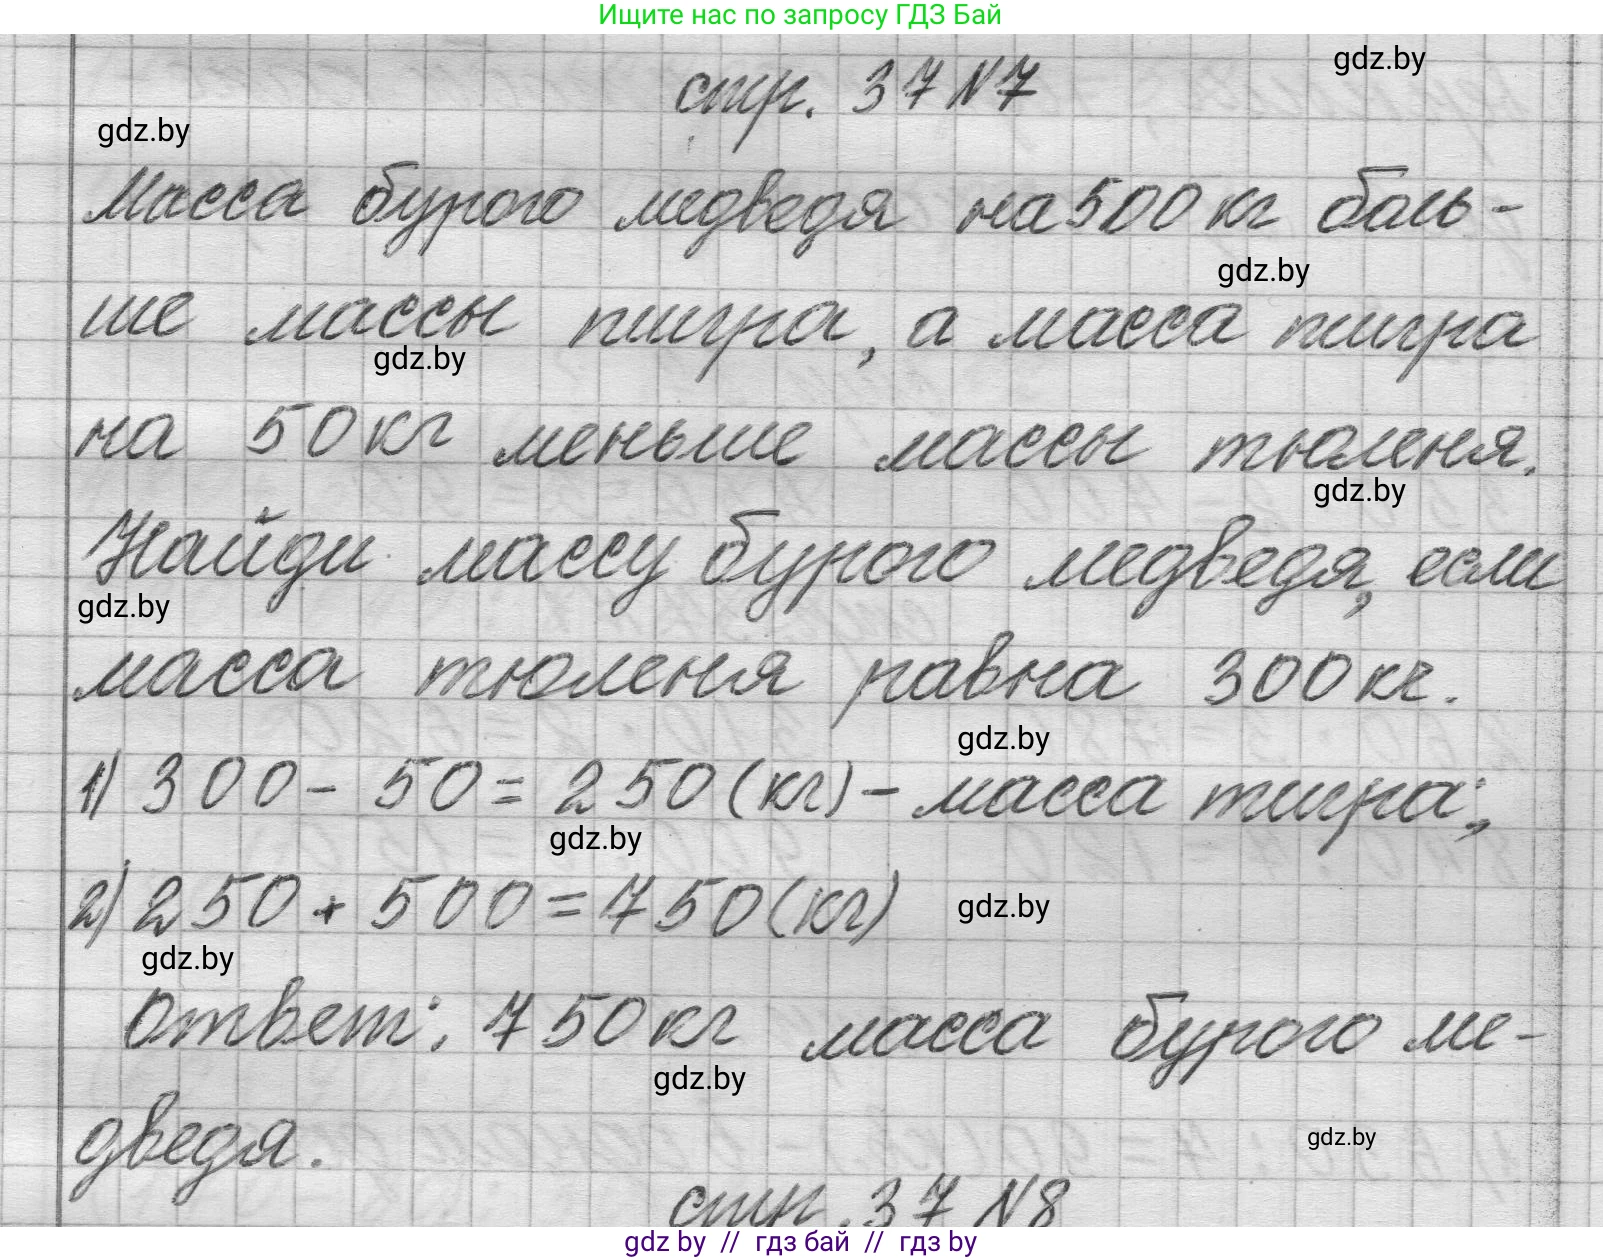 Ищите нас по запросу ГДЗ Бай
стр. 37 №7
gdz.by
gdz.by
Масса бурого медведя на 500 кг боль-
gdz.by
ше массы тигра, а масса тигра
gdz.by
на 50 кг меньше массы тюленя.
gdz.by
Найди массу бурого медведя, если
gdz.by
масса тюленя равна 300 кг.
gdz.by
1) 300 - 50 = 250 (кг) - масса тигра;
gdz.by
2) 250 + 500 = 750 (кг)
gdz.by
gdz.by
Ответ: 750 кг масса бурого ме-
gdz.by
дведя.
gdz.by
стр. 37 №8
gdz by // гдз бай // гдз by